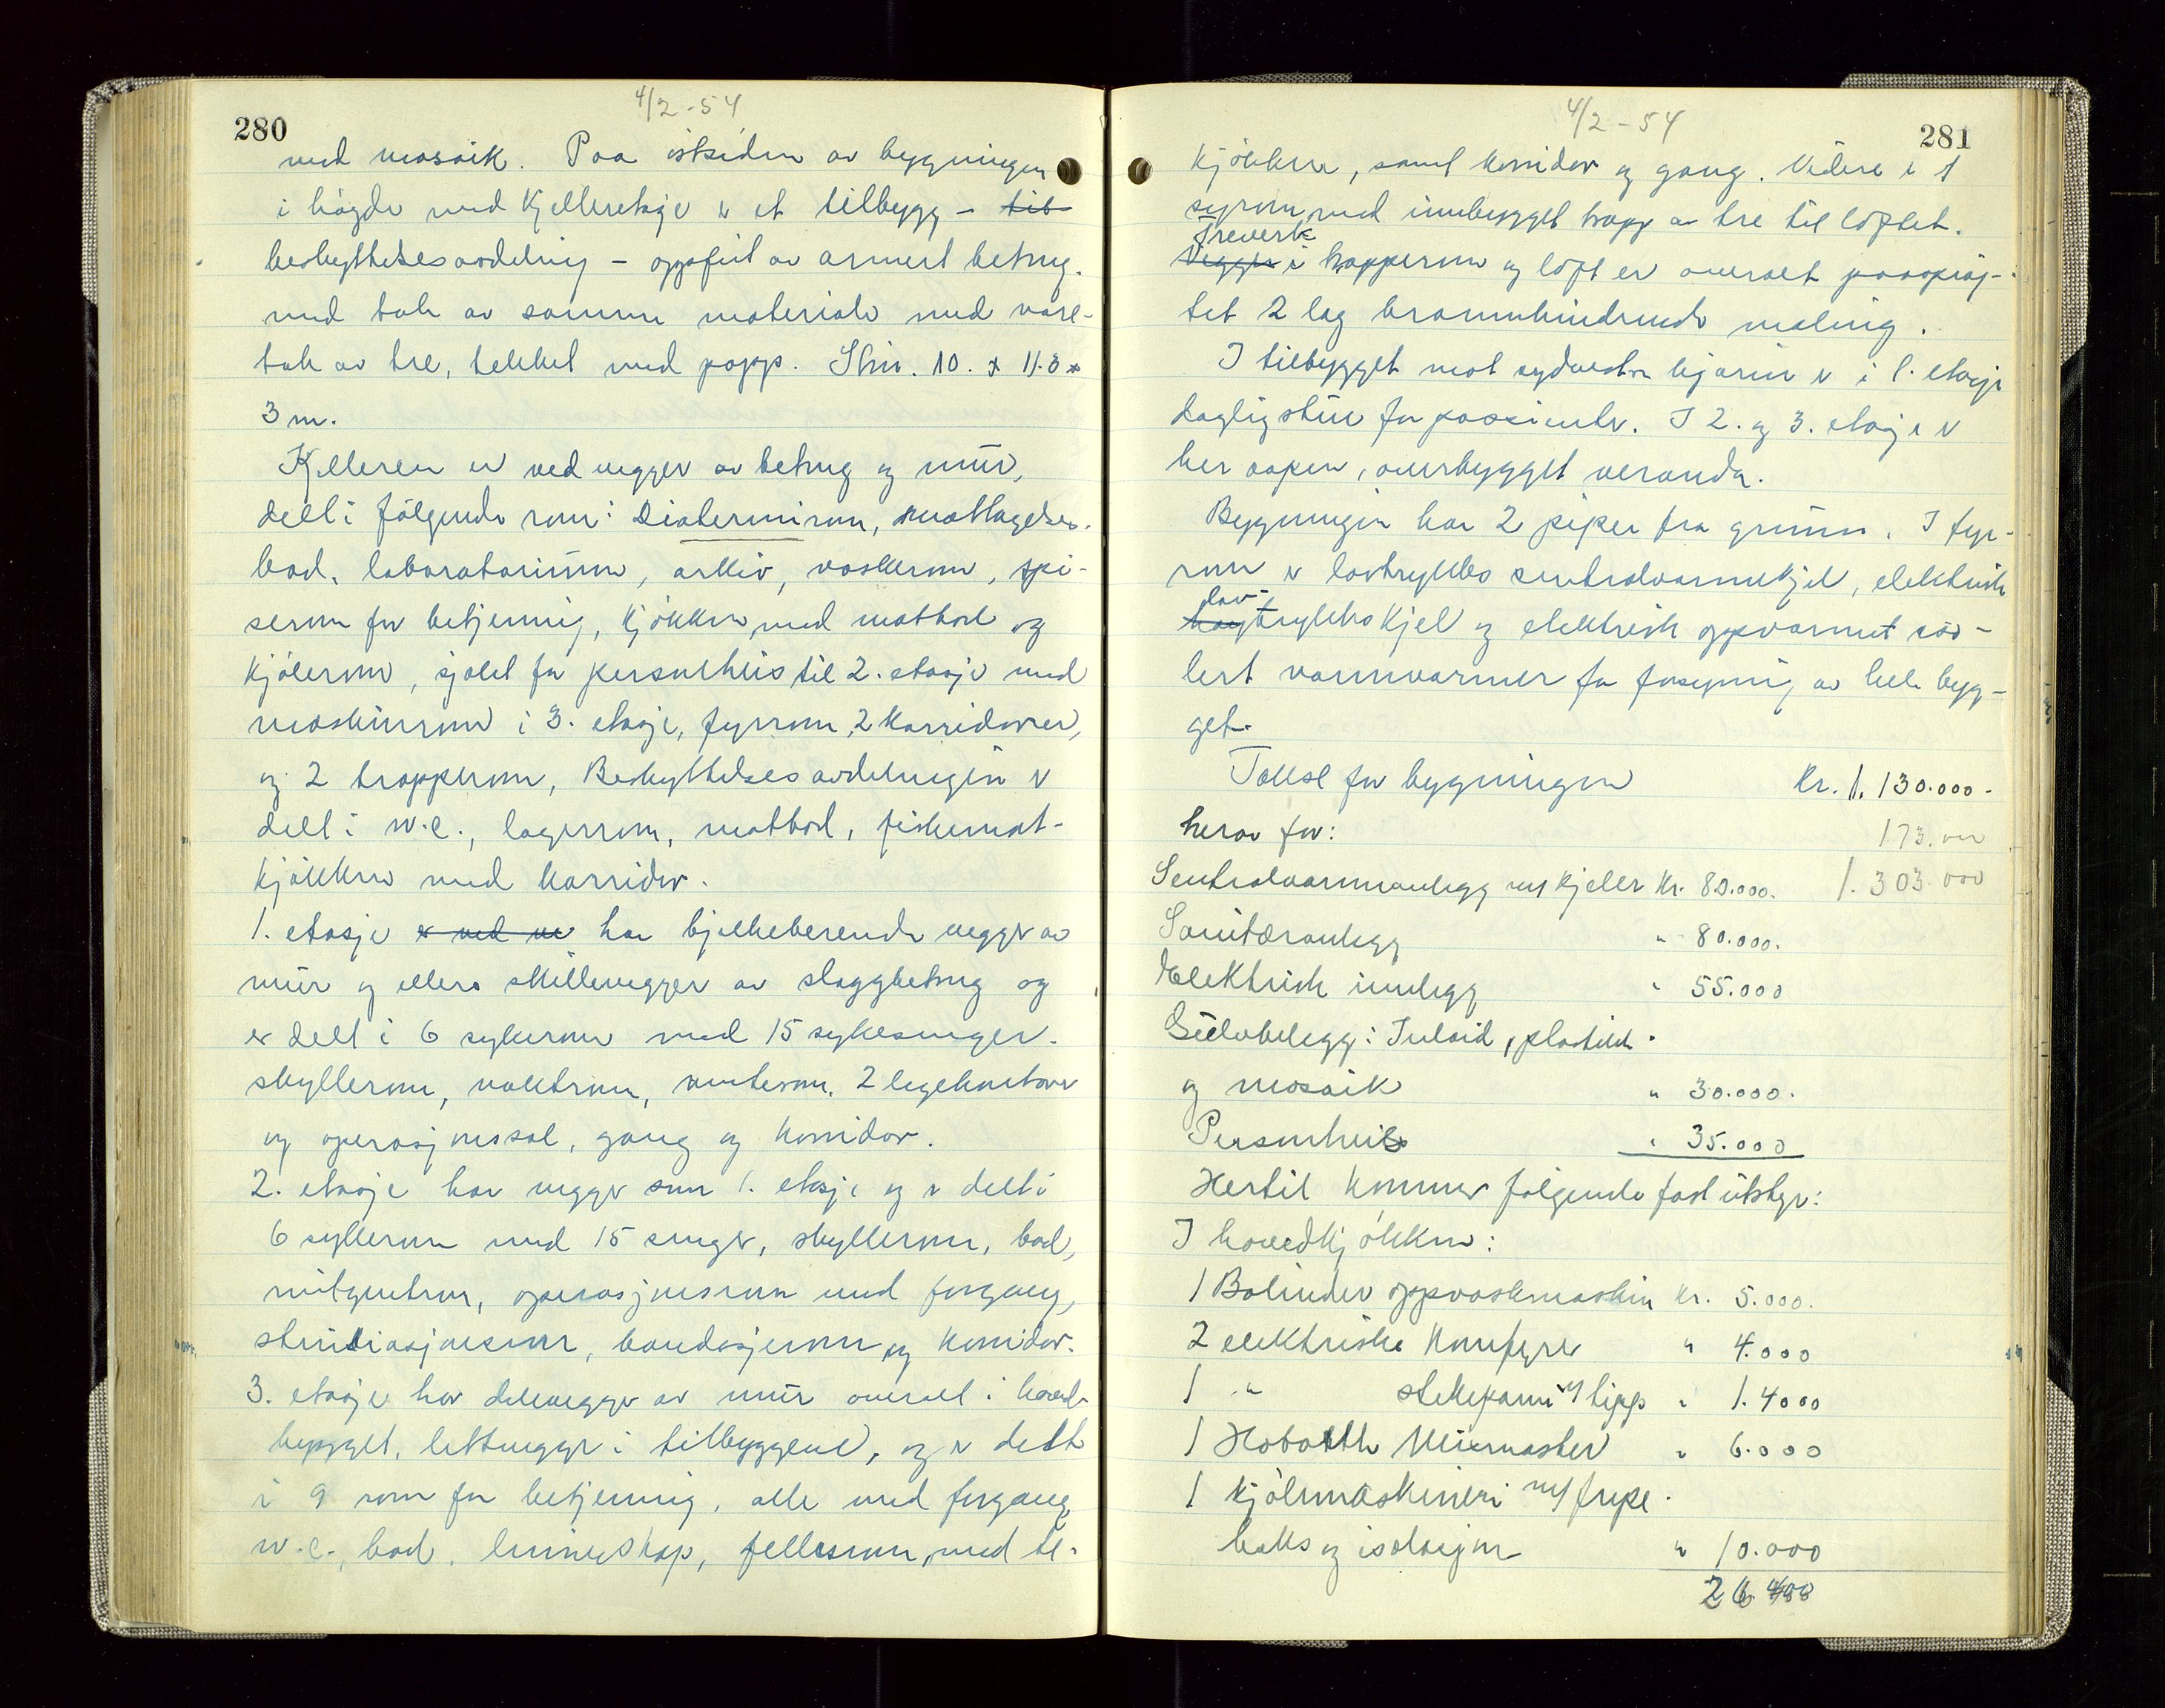 4/2-54
280
med mosaik. Paa östsiden av bygningen
i högde med Kjelleretasje er et tilbygg - til-
beskyttelsesavdeling - oppført av armert betong.
med tak av samme materiale med vare-
tak av tre, tekket med papp. Stör. 10. x 11.3 x
3 m.
Kjelleren er ved vegger av betong og mur,
delt i fölgende rom: Diatermirom, mottagelse,
bad, laboratorium, arkiv, vaskerom, spi-
serom for betjening, Kjökken med matbod og
Kjölerom, sjakt for personheis til 2. etasje med
maskinrom i 3. etasje, fyrrom, 2 Karridorer,
og 2 trapperom, Beskyttelsesavdelingen er
delt i w.c., lagerrom, matbod, fiskemat-
kjökken med Karridor.
1. etasje er ved ve har bjelkeberende vegger av
mur og ellers skillevegger av slaggbetong og
er delt i 6 sykerom med 15 sykesenger.
skyllerom, vaktrom, venterom, 2 legekontorer
og operasjonssal, gang og Korridor.
2. etasje har vegger som 1. etasje og er delt i
6 sykerom med 15 senger, skyllerom, bad,
röntgenrom, operasjonsrom med forgang,
sterilisasjonsrom, bandasjerom og Korridor.
3. etasje har delevegger av mur overalt i hoved-
bygget, lettvegger i tilbyggene, og er delt
i 9 rom for betjening, alle med forgang,
w.c., bad, linnedskap, fellesrom, med te-
4/2-54
281
Kjökken, samt Korridor og gang. Videre i 1
syrom med innbygget trapp av tre til loftet.
Treverk
Vegger i trapperom og loft er overalt paaspröj-
tet 2 lag brannhindrende maling.
I tilbygget mot sydvestre hjörne er i 1. etasje
dagligstue for pasienter. I 2. og 3. etasje er
her aapen, overbygget veranda.
Bygningen har 2 piper fra grunn. I fyr-
rom er lavtrykks sentralvarmekjel, elektrisk
lav-
höytrykks Kjel og elektrisk oppvarmet
varmvarmer for forsyning av hele byg-
get.
Takst for bygningen Kr. 1.130.000.-
herav for: 173.000
Sentralvarmeanlegg m/ Kjeller Kr. 80.000. 1.303.000
Sanitæranlegg " 80.000.
Elektrisk innlegg " 55.000
Gulvbelegg: Inlaid, plastikk
og mosaik " 30.000.
Personheis " 35.000
Hertil Kommer fölgende fast utstyr:
I hovedkjökken:
1 Bolinder oppvaskmaskin Kr. 5.000.
2 elektriske Komfyrer " 4.000
1 " stekepanne m/ tipp " 1.4000
1 Hobarth Mixmaster " 6.000
1 Kjölemaskineri m/ fryse-
boks og isolasjon " 10.000
26.400